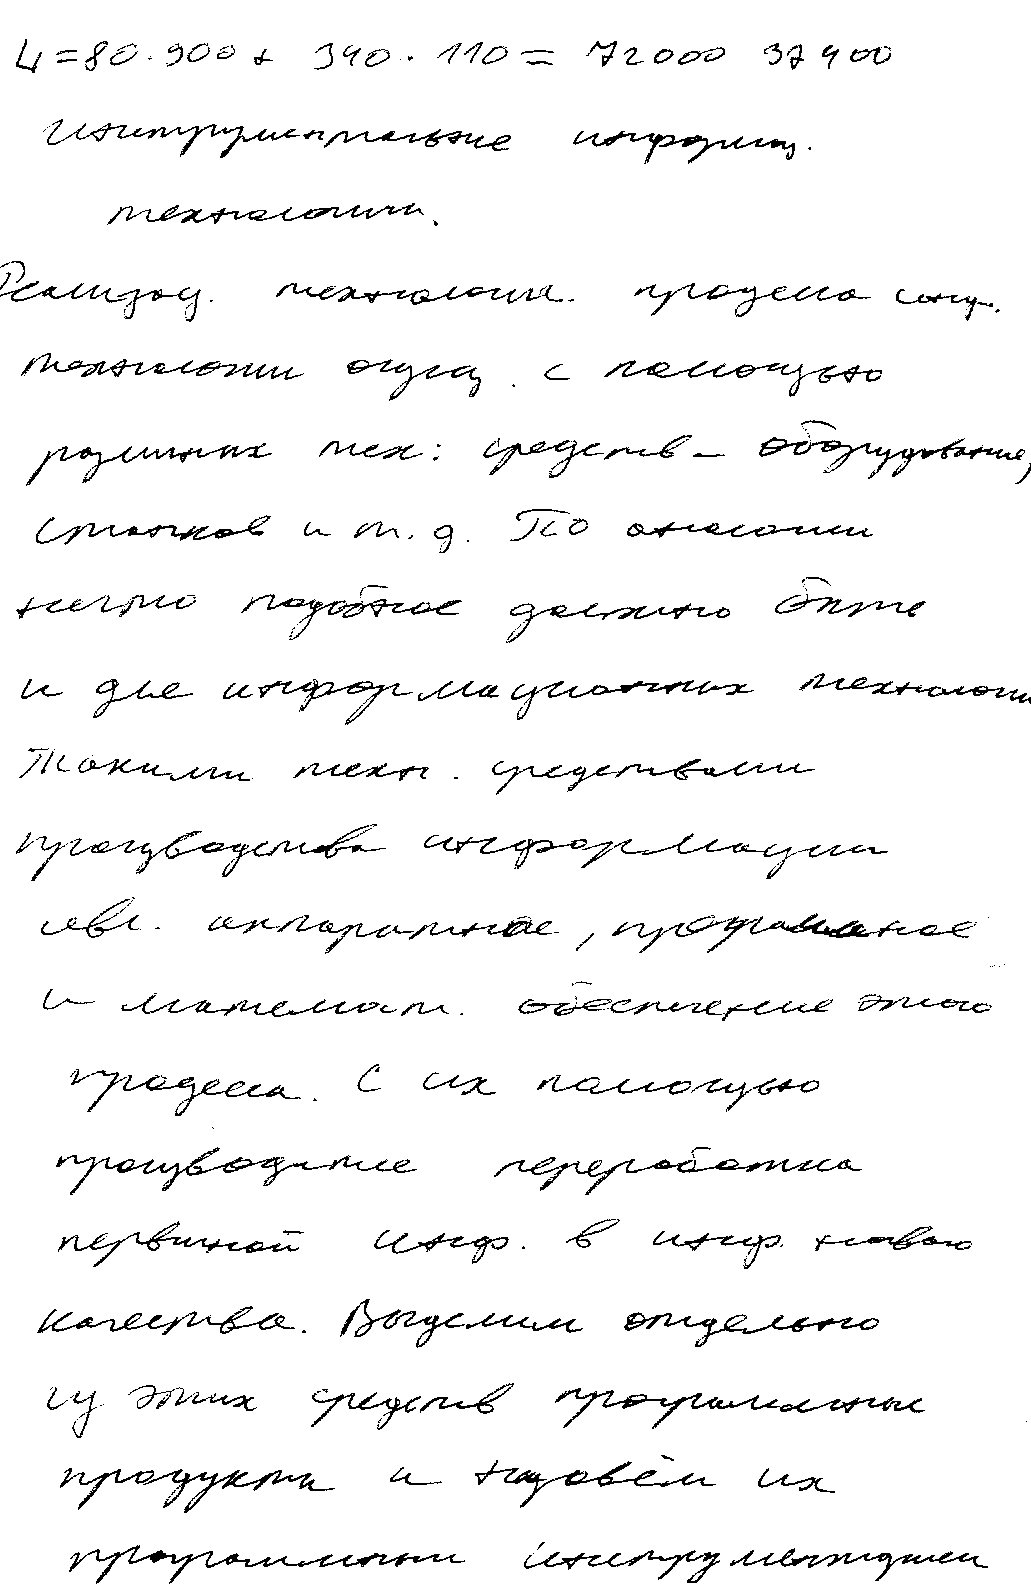 Ц=80·900+ 340·110= 72000 37400
Инструментальные информац.
технологии.
Реализац. технологии. процесса инф.
технологии осущ. с помощью
различных тех. средств – оборудование,
станков и т.д. ПО аналогии
нечто подобное должно быть
и для информационных технологи
Такими техн. средствами
производства информации
явл. аппаратное, програмное
и математ. обеспечение этого
процесса. С их помощью
производится переработка
первичной инф. в инф. нового
качества. Выделим отдельно
из этих средств программные
продукты и назовём их
программным инструментарием